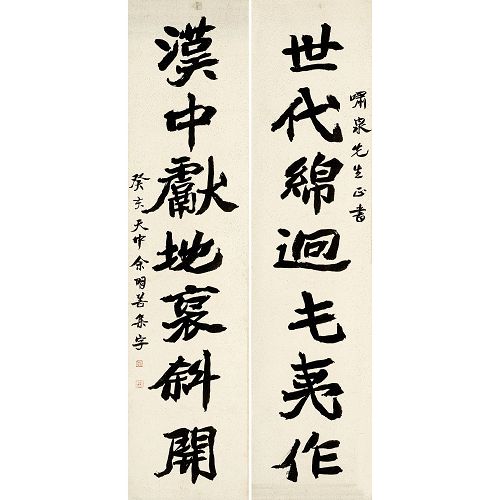 嘯泉先生正書
世代綿迥屯夷作
漢中獻地褒斜開
癸亥天中余明善集字